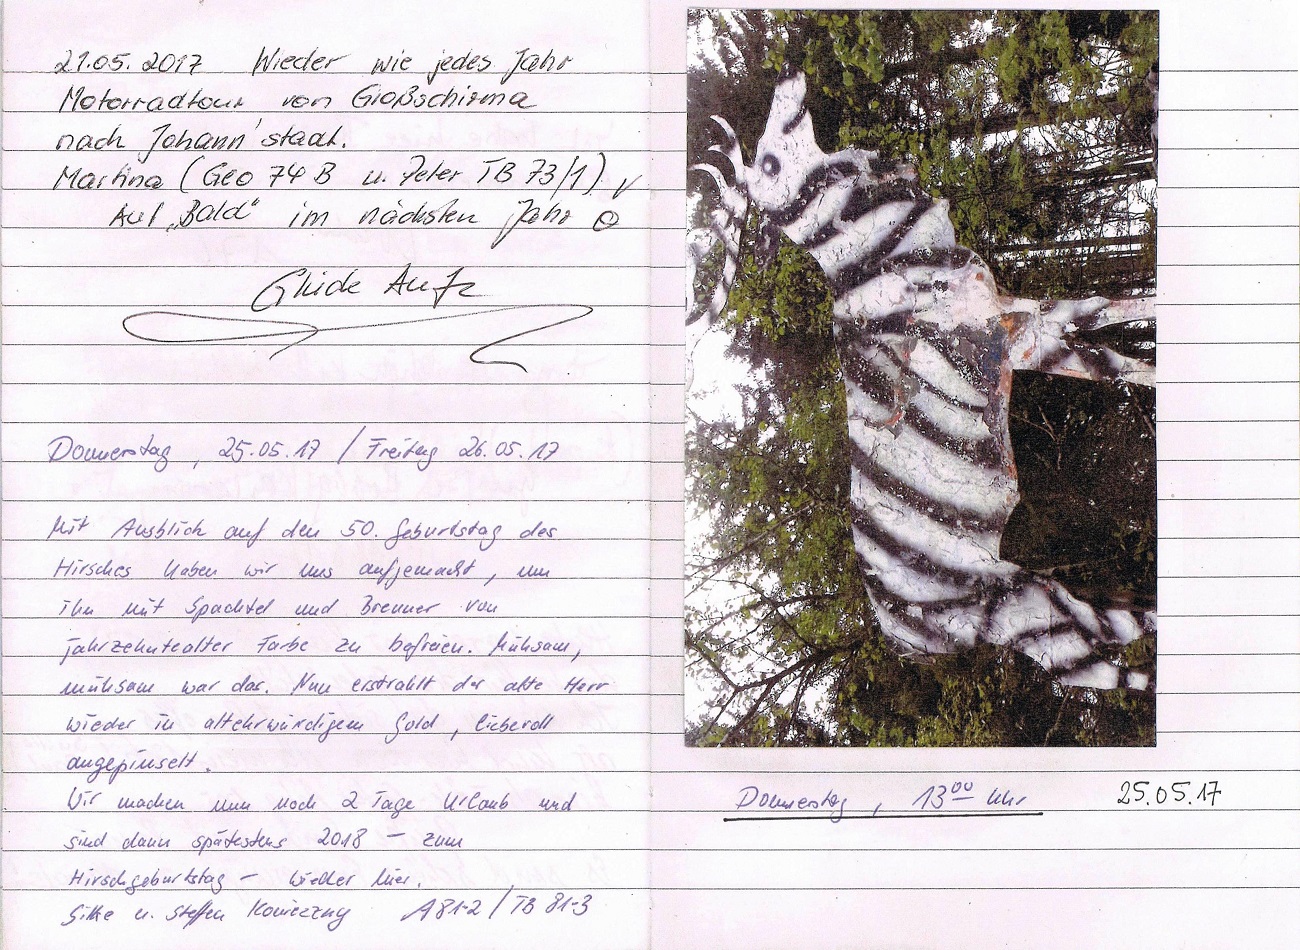 21.05.2017 Wieder wie jedes Jahr
Motorradtour von Großschirma
nach Johann'stadt.
Martina (Geo 74 B u. Peter TB 73/1)
Auf „Bald" im nächsten Jahr
Glück Auf
Donnerstag, 25.05.17 / Freitag 26.05.17
Mit Ausblick auf den 50. Geburtstag des
Hirsches haben wir uns aufgemacht, um
ihn mit Spachtel und Brenner von
jahrzehntealter Farbe zu befreien. Mühsam,
mühsam war das. Nun erstrahlt der alte Herr
wieder in altehrwürdigem Gold, liebevoll
angepinselt.
Wir machen nun noch 2 Tage Urlaub und
sind dann spätestens 2018 – zum
Hirschgeburtstag – wieder hier.
Silke u. Steffen Konieczny A81-2 / TB 81-3
Donnerstag, 13⁰⁰ Uhr 25.05.17